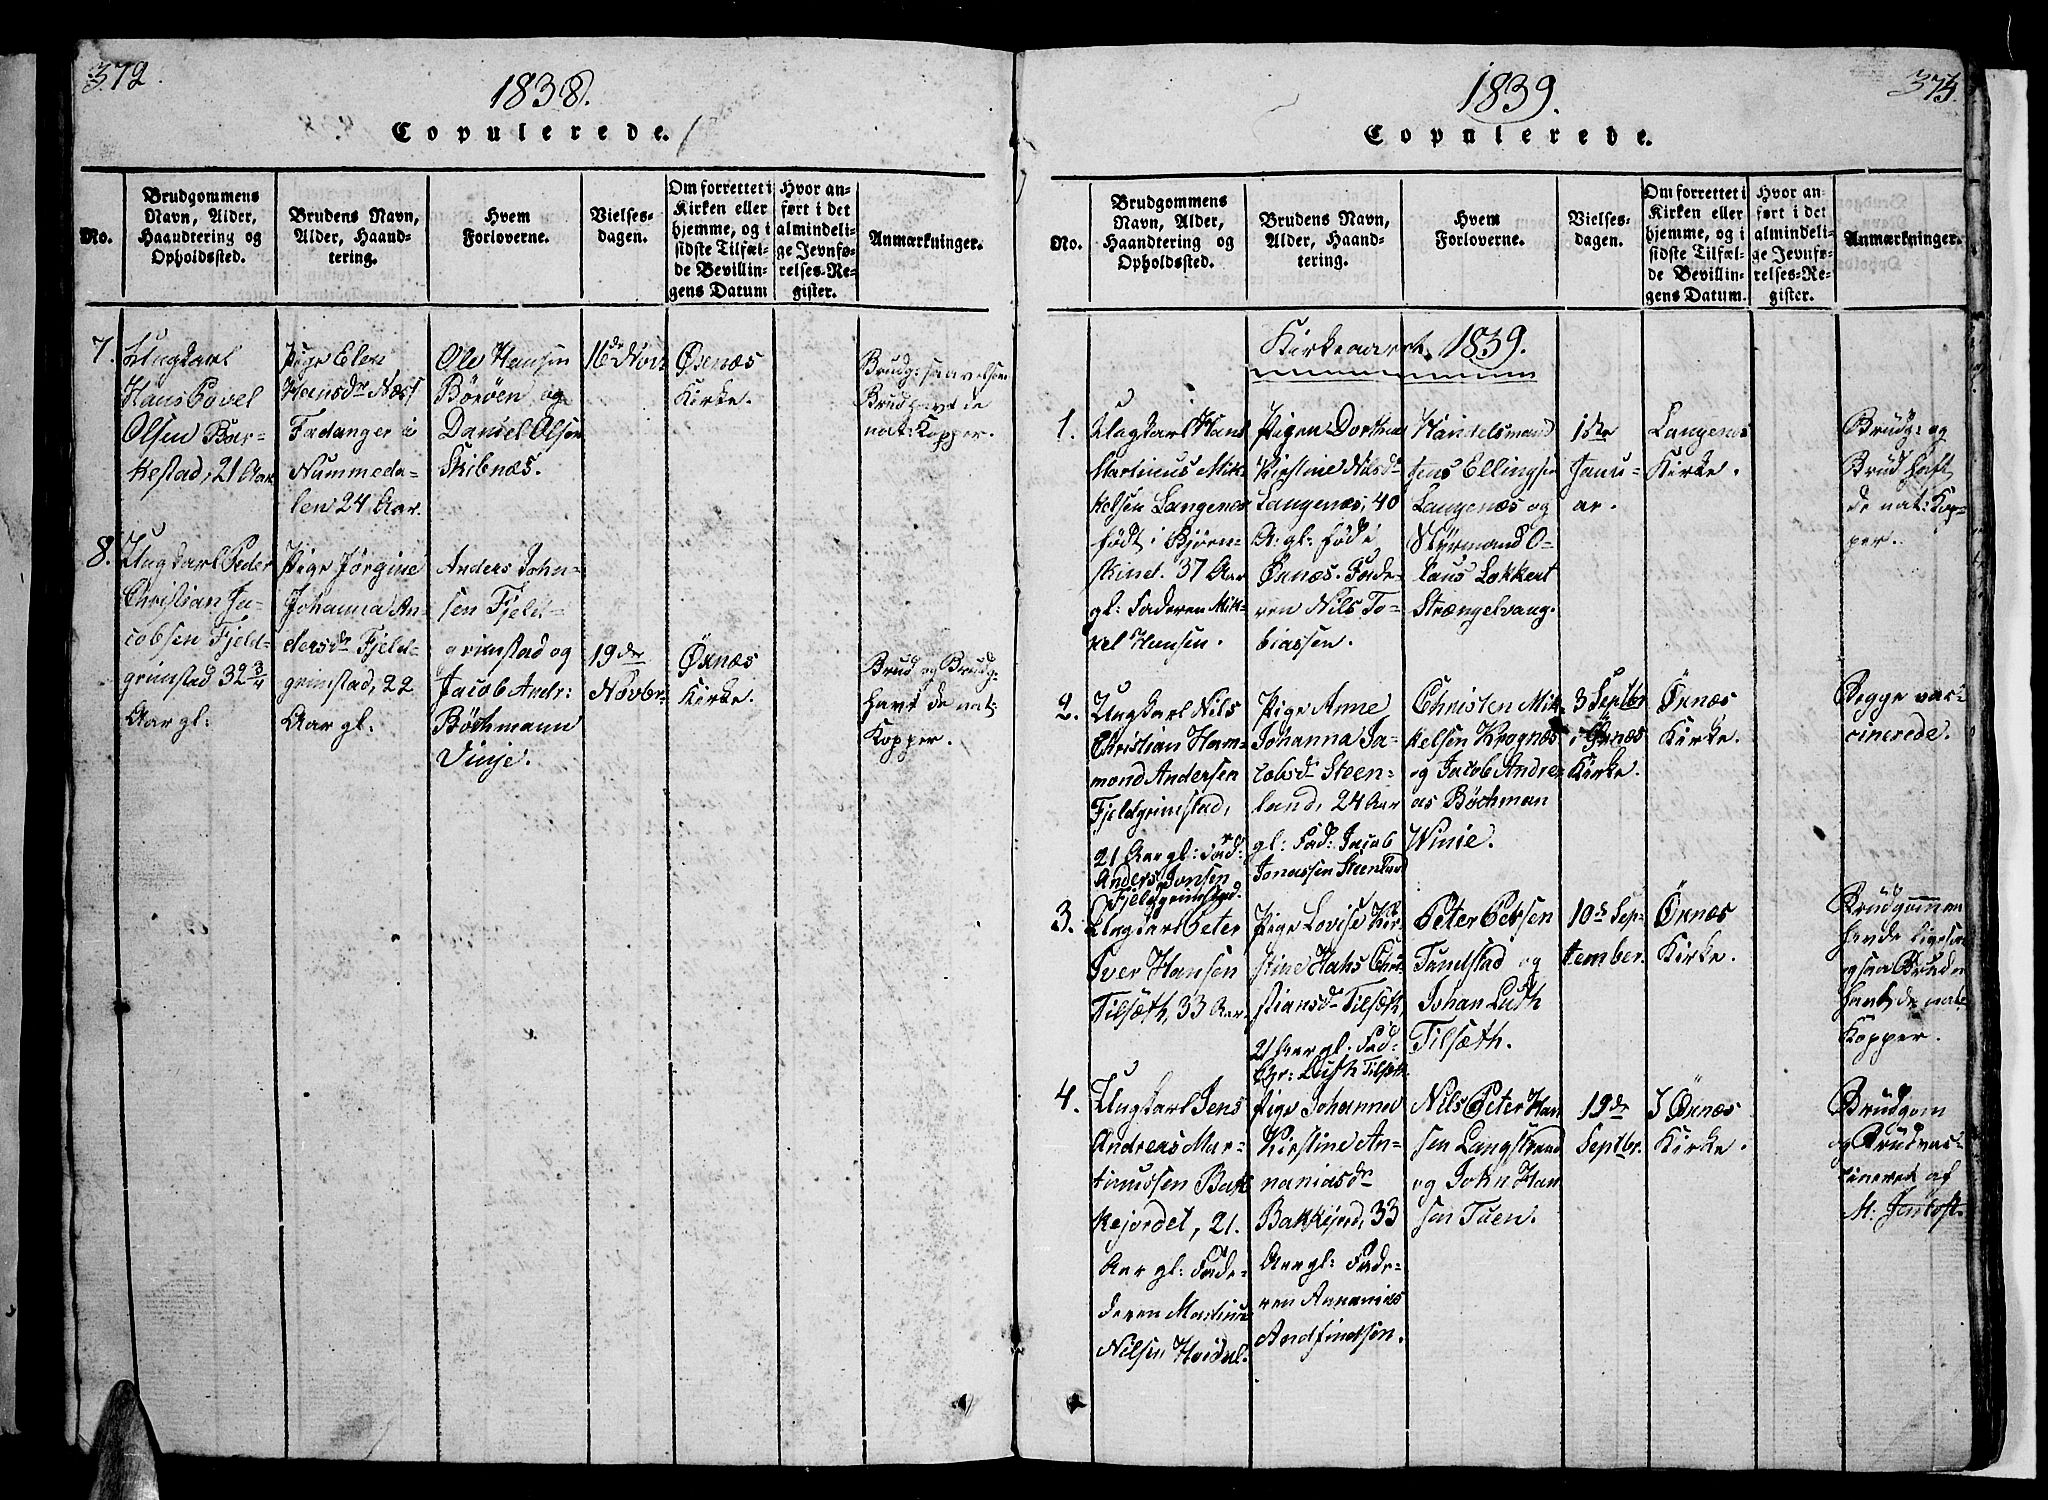 372.
1838.
Copulerede.
No.
Brudgommens
Navn, Alder,
Haandtering og
Opholdssted.
Brudens Navn,
Alder, Haand-
tering.
Hvem
Forloverne.
Vielses-
dagen.
Om forrettet i
Kirken eller
hjemme, og i
sidste Tilfæl-
de Bevillin-
gens Datum
Hvor an-
ført i det
almindeli-
ge Jevnfø-
relses-Re-
gister.
Anmærkninger.
7.
Ungkarl
Hans Povel
Olsen Bar-
kestad, 21 Aar
Pige Elen
Hansdr Næss
Fædanger i
Nummeda-
len 24 Aar.
Ole Hansen
Börøen og
Daniel Olsen
Skibnæs.
16de Novr
Øxnæs
Kirke.
Brudg: saavelsom
Brud havt de
nat: Kopper.
8.
Ungkarl Peder
Christian Ja-
cobsen Fjeld-
grimstad 32 3/4
Aar gl:
Pige Jörgine
Johanna An-
dersdr Fjeld-
grimstad, 22
Aar gl:
Anders John-
sen Fjeld-
grimstad og
Jacob Andr:
Böchmann
Vinje.
19de
Novbr
Øxnæs
Kirke.
Brud og Brudg:
havt de nat:
Kopper.
375.
1839.
Copulerede.
No.
Brudgommens
Navn, Alder,
Haandtering og
Opholdssted.
Brudens Navn,
Alder, Haand-
tering.
Hvem
Forloverne.
Vielses-
dagen.
Om forrettet i
Kirken eller
hjemme, og i
sidste Tilfæl-
de Bevillin-
gens Datum.
Hvor an-
ført i det
almindeli-
ge Jevnfø-
relses-Re-
gister.
Anmærkninger.
Kirkeaaret 1839.
1.
Ungkarl Hans
Martinus Mik-
kelsen Langenæs
födt i Bjørn-
skind. 37 Aar
gl: Faderen Mik-
kel Hansen.
Pigen Dorthea
Kirstine Nilsdr
Langenæs, 40
A: gl: föd i
Öxnæs. Fade-
ren Nils To-
biassen.
Handelsmand
Jens Ellingsen
Langenæs og
Styrmand O-
laus Lokkert
Strængelvaag.
1ste
Janu-
ar.
Langenæs
Kirke.
Brudg: og
Brud haft
de nat: Kop-
per.
2.
Ungkarl Nils
Christian Ham-
mond Andersen
Fjeldgrimstad,
21 Aar gl: Fad:
Anders Jonsen
Fjeldgrimstad.
Pige Anne
Johanna Ja-
cobsdr Steen-
land, 24 Aar
gl: Fad: Jacob
Jonassen Steenland
Christen Mik-
kelsen Krognæs
og Jacob Andre-
as Böchman
Winie.
3 Septbr
i Öxnæs
Kirke.
Öxnæs
Kirke.
Begge vac-
cinerede.
3.
Ungkarl Peter
Iver Hansen
Tilsæth, 33 Aar.
Pige Lovise Kir-
stine Hans Chri-
stiansdr Tilsæth,
21 Aar gl. Fad:
Chr: Luth Tilsæth.
Peter Petersen
Tunstad og
Johan Luth
Tilsæth.
10de Sep-
tember.
Öxnæs
Kirke.
Brudgommen
havde ligesom
ogsaa Bruden
havt de nat:
Kopper.
4.
Ungkarl Jens
Andreas Mar-
tinussen Bak-
kejordet, 21.
Aar gl: Fade-
deren Martinus
Nilsen Hvidal.
Pige Johanna
Kirstine An-
naniasdr
Bakkejord, 33
Aar gl: Fade-
ren Annanias
Andfindsen.
Nils Peter Han
sen Langstrand
og John Han
sen Tuen.
19de
Septbr.
I Öxnæs
Kirke.
Brudgom
og Brud vac-
cineret af
M: